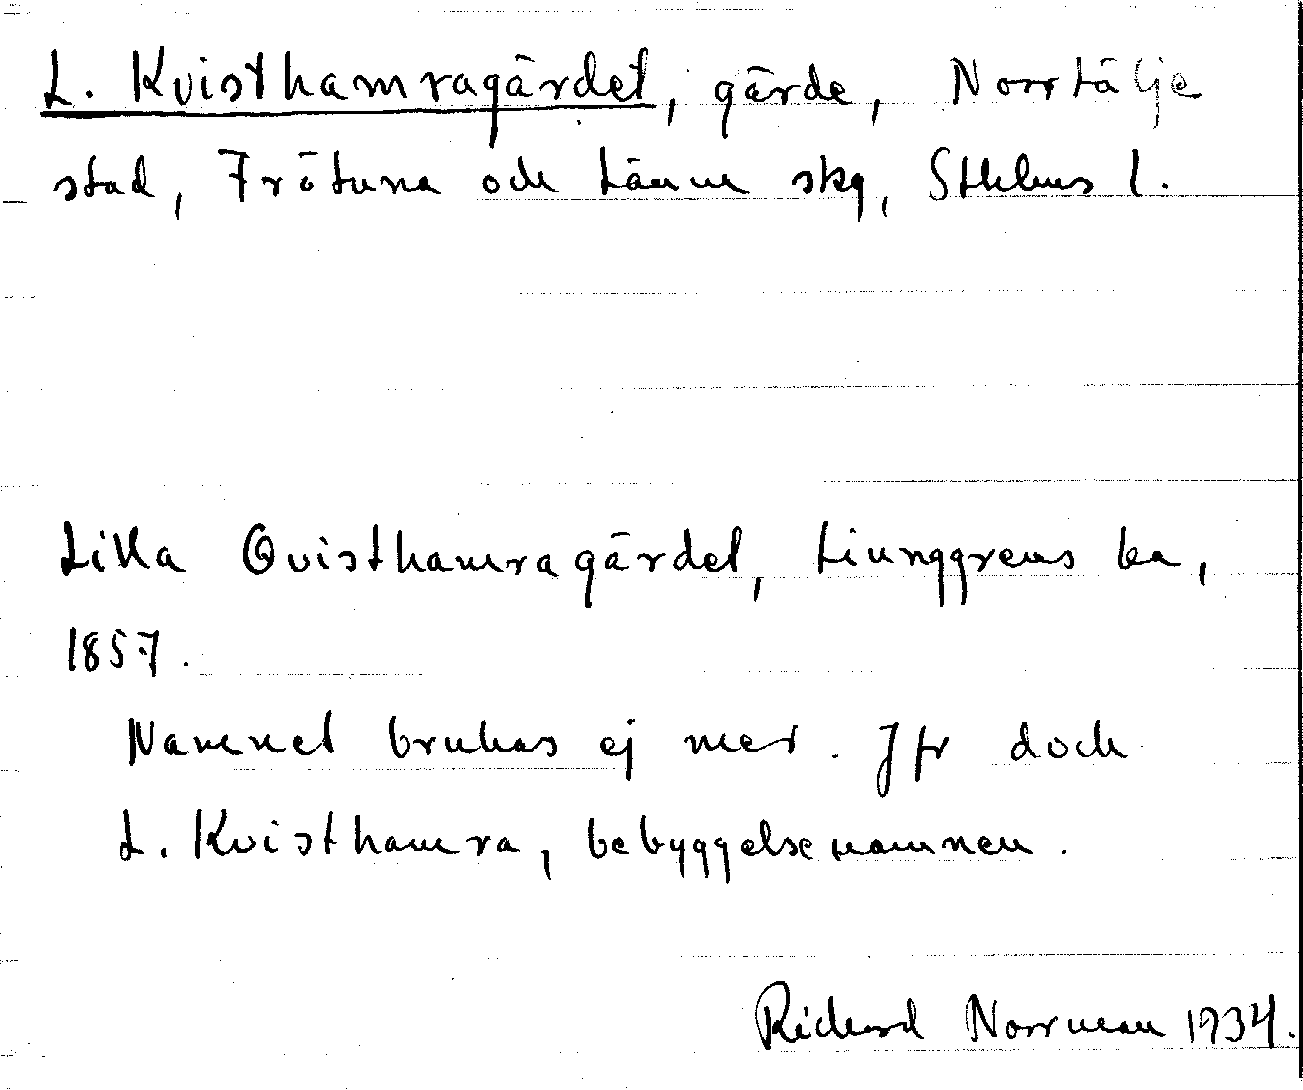 L. Kvisthamragärdet, gärde, Norrtälje
stad, Frötuna och Länna skg, Sthlms l.
Lilla Qvisthamragärdet, Liunggrens ka,
1857.
Namnet brukas ej mer. Jfr dock
L. Kvisthamra, bebyggelsenamnen.
Richard Norrman 1934.